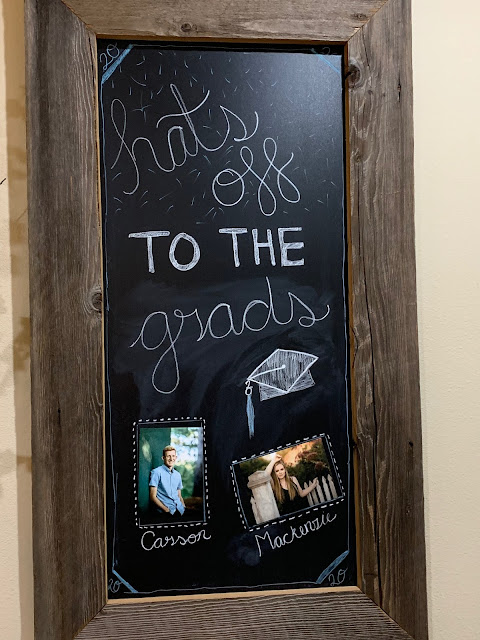 20
20
hats
off
TO THE
grads
Carson
Mackenzie
20
20